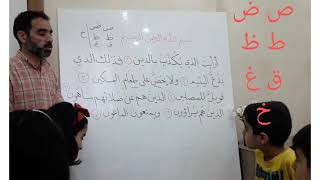 ص ض
ط ظ
ق غ
خ
بسم الله الرحمن الرحيم
أرأيت الذي يكذب بالدين فذلك الذي
يدع اليتيم ولا يحض على طعام المسكين
فويل للمصلين الذين هم عن صلاتهم ساهون
الذين هم يراؤون ويمنعون الماعون